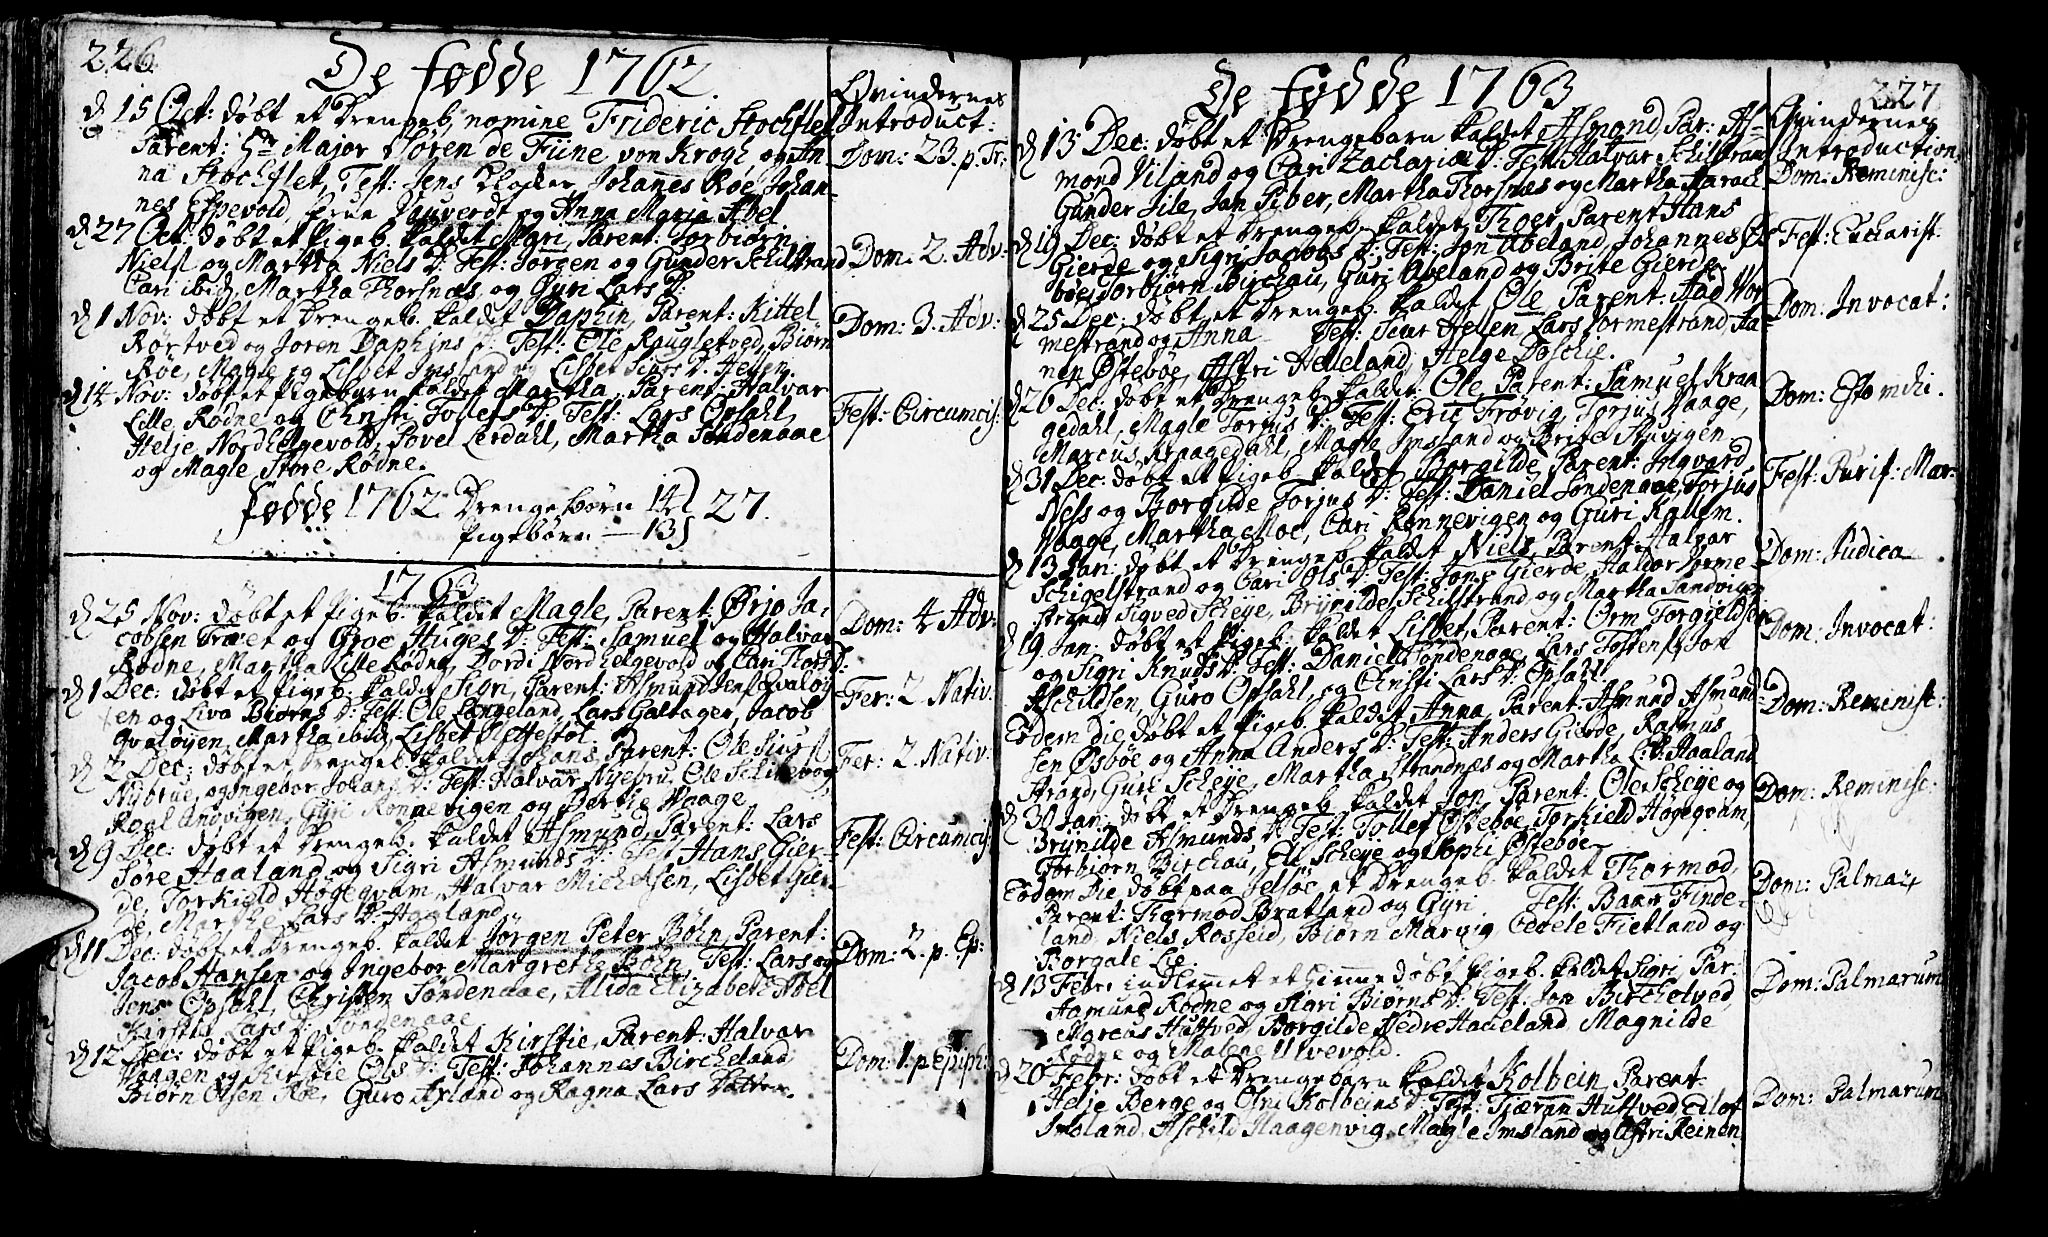 226
De fødde 1762.
Qvindernes
Introduct:
d 15 Oct: døbt et Drengeb, nomine Frideric Stochflet
Parent: Major Søren de Fiine von Krogh og An-
na Stochflet, Test: Jens Johannes Røe, Johan-
nes Espevold, Frue og Anna Maria Abel
Dom: 23. p. Tr:
d 27 Oct: døbt et Pigeb. kaldet Mari, Parent: Torbiørn
Niels: og Martha Niels D: Test: Jørgen og Gunder Schilstrand
Cari ibid, Martha Thorsnæs, og Guri Lars D:
Dom. 2. Adv:
d 1 Nov: døbt et Drengeb. kaldet Daphin, Parent: Kittel
Rörtved og Joren Daphins D: Test: Ole Rougletved, Biørn
Røe, Magle og Lisbet Imsland og Lisbet Siurs D. Hetlem.
Dom: 3. Adv:
d 14 Nov: døbt et Pigebarn kaldet Martha, Parent: Halvar
Lille Rødne og Christi Tollefs D: Test: Lars Opsahl,
Helje Nordhelgevold, Povel Lerdahl, Martha Søndenaae
og Magle Store Rødne.
Fest: Circumcis:
Fødde 1762 Drengebørn 14 } 27.
Pigebørn — 13
1763
d 25 Nov: døbt et Pigeb. kaldet Magle, Parent: Ørjo Ja-
cobsen Træet og Groe Huges D: Test: Samuel og Halvar
Rødne, Martha Lille Rødne, Dordi Nordhelgevold og Cari Thors D:
Dom: 4 Adv:
d 1 Dec: døbt et Pigeb: kaldet Sigri, Parent: Asmund Jens: Qvaløy-
en og Liva Biørns D: Test: Ole Langeland, Lars Galtager, Jacob
Qvaløyen, Martha ibid, Lisbet
Fer: 2 Nativ:
d 2 Dec: døbt et Drengeb. kaldet Johans, Parent: Ole Siurs:
Nybrue, og Ingebor Johans D: Test: Halvar Nyebru, Ole
Roaldndvigen, Gyri Rønnevigen og Bertie Waage
Fer: 2. Nativ:
d 9 Dec: døbt et Drengeb. kaldet Asmund, Parent: Lars
Søre Haaland og Sigri Asmunds D: Test: Hans Gier-
de, Torkield Høgeqvam, Halvar Michelsen, Lisbet Gier-
de, Marthe Lars D: Haaland
Fest: Circumcis:
d 11 Dec: døbt et Drengeb. kaldet Jørgen Peter Bøhn, Parent:
Jacob Hansen og Ingebor Margrethe Bøhn, Test: Lars og
Jens Opsahl, Christen Søndenaae, Alida Elizabeth Abel
Kirstie Lars D: Søndenaae
Dom: 2. p. Ep:
d 12 Dec: døbt et Pigeb. kaldet Kirstie, Parent: Halvar
Haagen og Kirstie Ols D: Test: Johannes Bircheland
Biørn Olsen Røe, Guro Axland og Ragna Lars Datter.
Dom: 1. p Epiph:
227
De fødde 1763
Qvindernes
Introduction
d 13 Dec: døbt et Drengebarn kaldet Asmond, Par: As-
mond Viland og Cari Zachariæ D: Test: Halvar Schilstrand
Gunder Jile, Jan Piber, Martha Thorsnæs og Martha
Dom: Reminisc:
d 19 Dec: døbt et Drengeb. kaldet Thoer, Parent Hans
Gierde og Sigri Jacobs D: Test: Jon Abeland, Johannes Øs-
bøe, Torbiørn Birchau, Guri Abeland og Brite Gierde.
Fest: Eucharist:
d 25 Dec: døbt et Drengeb. kaldet Ole Parent: Aad Wor-
mestrand og Anna Test: Lars Wormestrand, Aa-
nen Østebøe, Astri Helleland, Helge Døschie.
Dom: Invocat:
d 26 Dec: døbt et Drengeb. kaldet Ole, Parent: Samuel Kraa-
gedahl, Magle Torjus D: Test: Eric Frøvig, Torjus Vaage,
Marcus Kraagedahl, Magle Imsland og Brite Stuvigen
Dom: Estomihi.
d 31 Dec: døbt et Pigeb. kaldet Borgilde, Parent: Ingvard
Ness og Borgilde Torjus D: Test: Daniel Søndenaae, Torjus
Vaage, Martha Moe, Cari Rønnevigen og Guri Kallem.
Fest: Purif: Mar:
d 13 Jan: døbt et Drengeb. kaldet Niels, Parent. Halvar
Schigelstrand og Cari Ols D: Test: Jone Gierde, Haldor Jorme
strand, Sigved Scheye, Brynilde Schilstrand og Martha Sandvigen
Dom: Judica
d 19 Jan: døbt et Pigeb. kaldet Lisbet, Parent: Orm Torgieldsen
og Sigri Knuds D: Test: Daniel Søndenaae, Lars Tostens: Jon
Aschildsen, Guro Opsahl, og Christi Lars D: Opsahl.
Dom: Invocat:
Eodem Die døbt et Pigeb. kaldet Anna, Parent: Asmund Asmund-
sen Øsbøe og Anna Anders D: Test: Anders Gierde, Rasmus
Strand, Guri Scheye, Martha Strandnæs og Martha L:D: Haaland
Dom: Reminisc:
d 30 Jan: døbt et Drengeb. kaldet Jon Parent: Ole Scheye og
Brynilde Asmunds D: Test: Tollef Østebøe, Torkield Høgeqvam,
Torbiørn Birchau, Eli Scheye og Sophi Østebøe
Dom: Reminisc:
Eodem Die døbt paa Jelsøe et Drengeb. kaldet Thormod,
Parent: Thormod Bratland og Gyri Test: Baar Finde-
land, Niels Rosseid, Biørn Marvig Cecele Fietland og
Borgale Lie.
Dom: Palmar
d 13 Febr: indlemmet et hiemmedøbt Pigeb. kaldet Sigri, Par:
Aamund Rødne og Sigri Biørns D: Test: Jon Birchetved,
Marcus Huftved, Borgilde Nedre Haaeland Magnilde
Rødne og Malene Ulvevold.
Dom: Palmarum
d 20 Febr: døbt et Drengebarn kaldet Kolbein, Parent.
Helje Berge og Olri Kolbeins D: Test: Tiæran Huftved, Elof
Imsland, Aschild Haagenvig, Magle Imsland og Astri Reinen
Dom: Palmarum